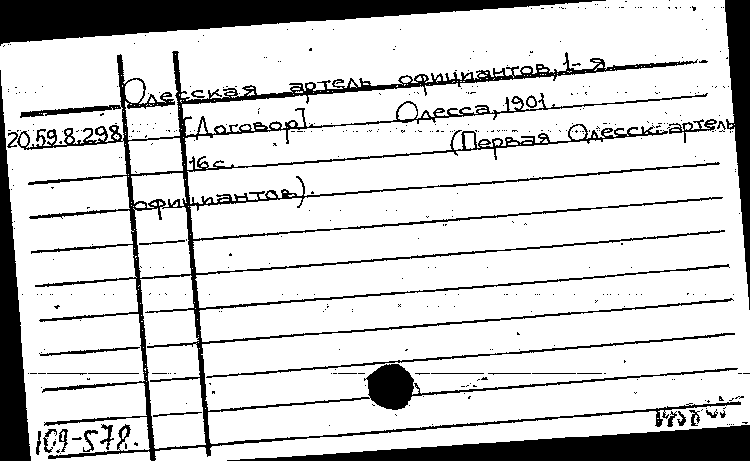 Одесская артель официантов, 1-я.
20.59.8.298 [Договор]. Одесса, 1901.
16 с. (Первая Одесск. артель
официантов).
109-578.